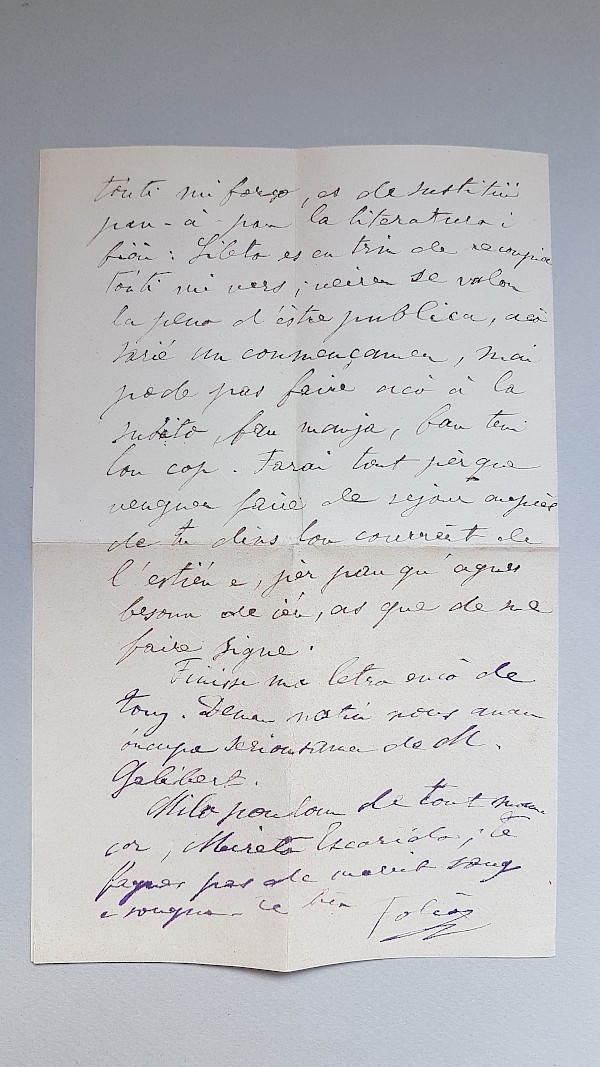 tóuti mi forço, es de sustituï
pau-à-pau la literaturo i
biòu : Lileto es en trin de recoupia
tóuti mi vers ; veiren se valon
la peno d'èstre publica, acò
sarié un coumençamen, mai
pode pas faire acò à la
subito, fau manja, fau teni
lou cop. Farai tout pèrque
vengues faire de sejour auprès
de tu dins lou courrènt de
l'estiéu e, pèr pau qu'agues
besoun de iéu, as que de me
faire signe.
Finisse ma letro encò de
Tony. Deman matin nous anan
óucupa seriousamen de M.
Gelibert.
Milo poutoun de tout moun
cor, Mireto Escarido ; te
fagues pas de marrit sang
e sougno-te bèn